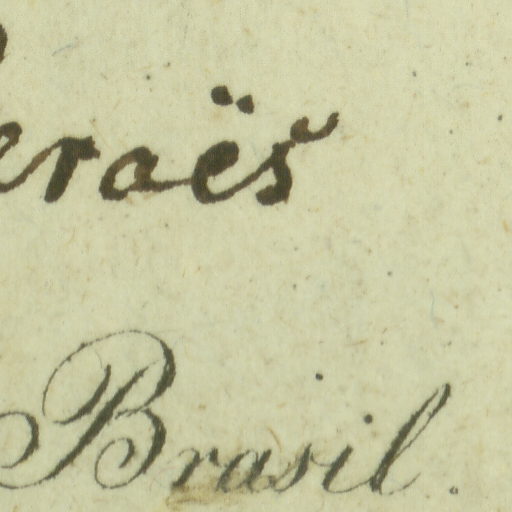 eraës
Brasil.